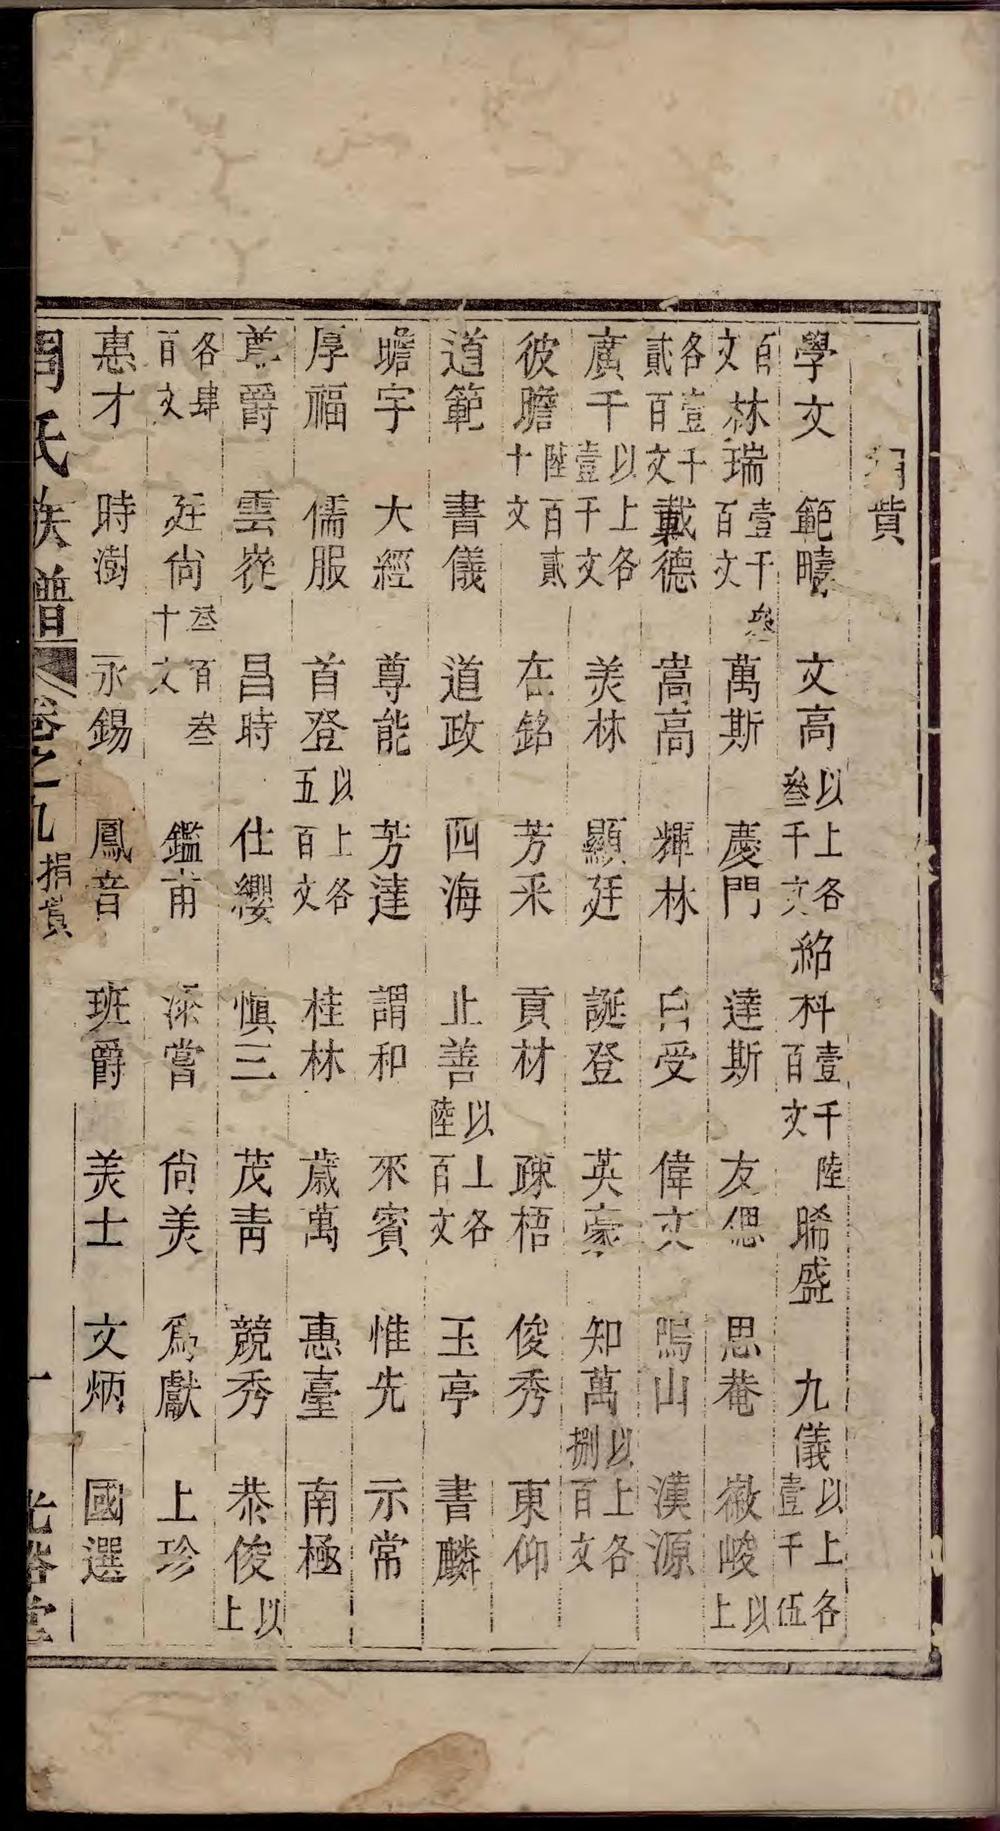 捐貲
學文 範疇 文高以上各叁千文 紹科壹千陸百文 晞盛 九儀以上各壹千伍
百文 林瑞壹千叁百文 萬斯 慶門 達斯 友偲 思菴 徽峻以上
各壹千貳百文 戴德 嵩高 輝林 自受 偉文 鳴山 漢源
廣千以上各壹千文 美林 顯廷 誕登 英豪 知萬以上各捌百文
彼瞻陸百貳十文 在銘 芳采 貢材 疎梧 俊秀 東仰
道範 書儀 道政 四海 止善以上各陸百文 玉亭 書麟
瞻宇 大經 尊能 芳達 謂和 來賓 惟先 示常
厚福 儒服 首登以上各五百文 桂林 歳萬 惠臺 南極
尊爵 雲從 昌時 仕纓 慎三 茂青 競秀 恭俊以上
各肆百文 廷尚叁百叁十文 鑑甫 添嘗 尚美 爲獻 上珍
惠才 時澍 永錫 鳳音 班爵 美士 文炳 國選
周氏族譜 卷之九 捐貲 一 光裕堂